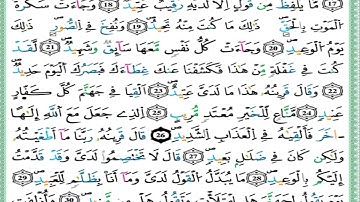 ﴿17﴾ مَّا يَلْفِظُ مِن قَوْلٍ إِلَّا لَدَيْهِ رَقِيبٌ عَتِيدٌ ﴿18﴾ وَجَآءَتْ سَكْرَةُ
الْمَوْتِ بِالْحَقِّ ذَٰلِكَ مَا كُنتَ مِنْهُ تَحِيدُ ﴿19﴾ وَنُفِخَ فِي الصُّورِ ذَٰلِكَ
يَوْمُ الْوَعِيدِ ﴿20﴾ وَجَآءَتْ كُلُّ نَفْسٍ مَّعَهَا سَآئِقٌ وَشَهِيدٌ ﴿21﴾ لَّقَدْ
كُنتَ فِي غَفْلَةٍ مِّنْ هَٰذَا فَكَشَفْنَا عَنكَ غِطَآءَكَ فَبَصَرُكَ الْيَوْمَ حَدِيدٌ
﴿22﴾ وَقَالَ قَرِينُهُ هَٰذَا مَا لَدَيَّ عَتِيدٌ ﴿23﴾ أَلْقِيَا فِي جَهَنَّمَ كُلَّ كَفَّارٍ
عَنِيدٍ ﴿24﴾ مَّنَّاعٍ لِّلْخَيْرِ مُعْتَدٍ مُّرِيبٍ ﴿25﴾ الَّذِي جَعَلَ مَعَ اللَّهِ إِلَٰهًا
ءَاخَرَ فَأَلْقِيَاهُ فِي الْعَذَابِ الشَّدِيدِ ﴿26﴾ قَالَ قَرِينُهُ رَبَّنَا مَآ أَطْغَيْتُهُ
وَلَٰكِن كَانَ فِي ضَلَٰلٍ بَعِيدٍ ﴿27﴾ قَالَ لَا تَخْتَصِمُوا لَدَيَّ وَقَدْ قَدَّمْتُ
إِلَيْكُم بِالْوَعِيدِ ﴿28﴾ مَا يُبَدَّلُ الْقَوْلُ لَدَيَّ وَمَآ أَنَا بِظَلَّٰمٍ لِّلْعَبِيدِ ﴿29﴾
يَوْمَ نَقُولُ لِجَهَنَّمَ هَلِ امْتَلَأْتِ وَتَقُولُ هَلْ مِن مَّزِيدٍ ﴿30﴾ وَأُزْلِفَتِ